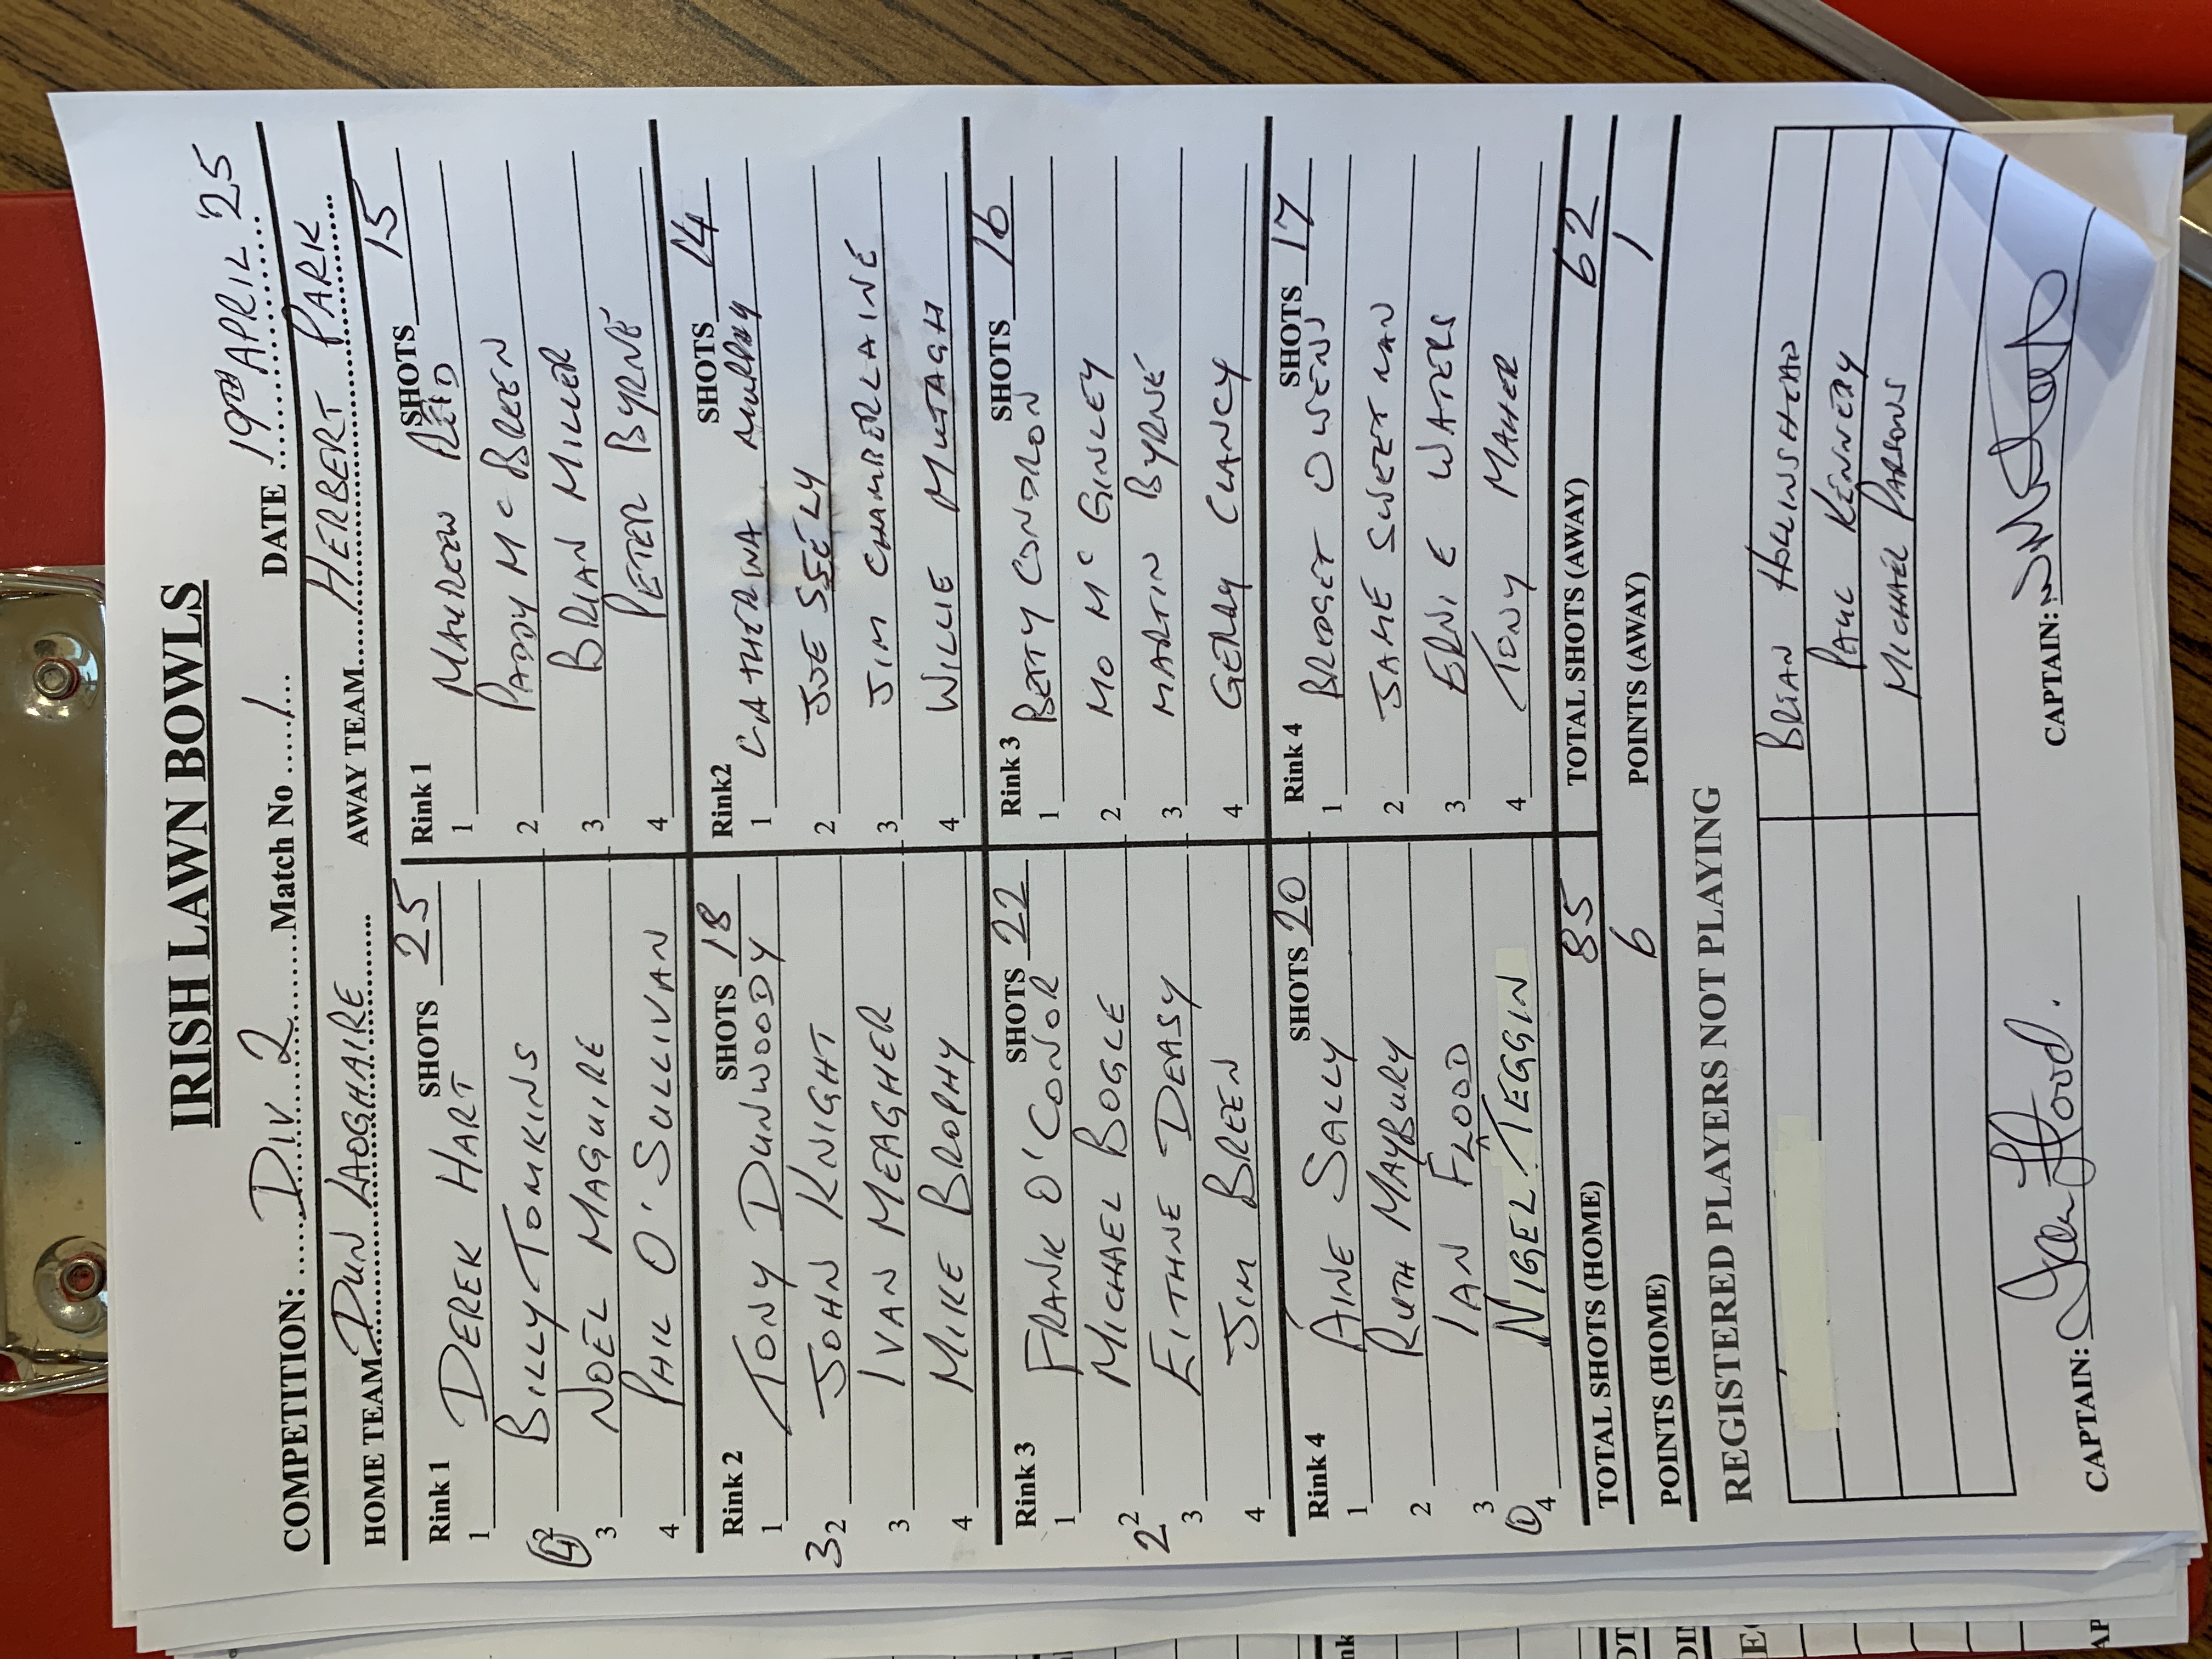 IRISH LAWN BOWLS
COMPETITION: Div 2 Match No 1 DATE 19TH APRIL '25
HOME TEAM DUN LAOGHAIRE AWAY TEAM HERBERT PARK
Rink 1 SHOTS 25
1 DEREK HART
(4) 2 BILLY TOMKINS
3 NOEL MAGUIRE
4 PHIL O'SULLIVAN
Rink 1 SHOTS 15
1 MAUREEN REID
2 PADDY McBREEN
3 BRIAN MILLER
4 PETER BYRNE
Rink 2 SHOTS 18
1 TONY DUNWOODY
3 2 JOHN KNIGHT
3 IVAN MEAGHER
4 MIKE BROPHY
Rink2 SHOTS 14
1 CATHERINA MURRAY
2 JOE SEELY
3 JIM CHAMBERLAINE
4 WILLIE MUTAGH
Rink 3 SHOTS 22
1 FRANK O'CONOR
2 2 MICHAEL BOGLE
3 EITHNE DEASY
4 JIM BREEN
Rink 3 SHOTS 16
1 BETTY CONDRON
2 MO McGINLEY
3 MARTIN BYRNE
4 GERRY CLANCY
Rink 4 SHOTS 20
1 ÁINE SALLY
2 RUTH MAYBURY
3 IAN FLOOD
(1) 4 NIGEL TEGGIN
Rink 4 SHOTS 17
1 BRIDGET OWENS
2 JAME SWEETMAN
3 ERNIE WATERS
4 TONY MAHER
TOTAL SHOTS (HOME) 85 TOTAL SHOTS (AWAY) 62
POINTS (HOME) 6 POINTS (AWAY) 1
REGISTERED PLAYERS NOT PLAYING
BRIAN HOLLINSHEAD
PAUL KENNEDY
MICHAEL PARSONS
CAPTAIN: Ian Flood. CAPTAIN: